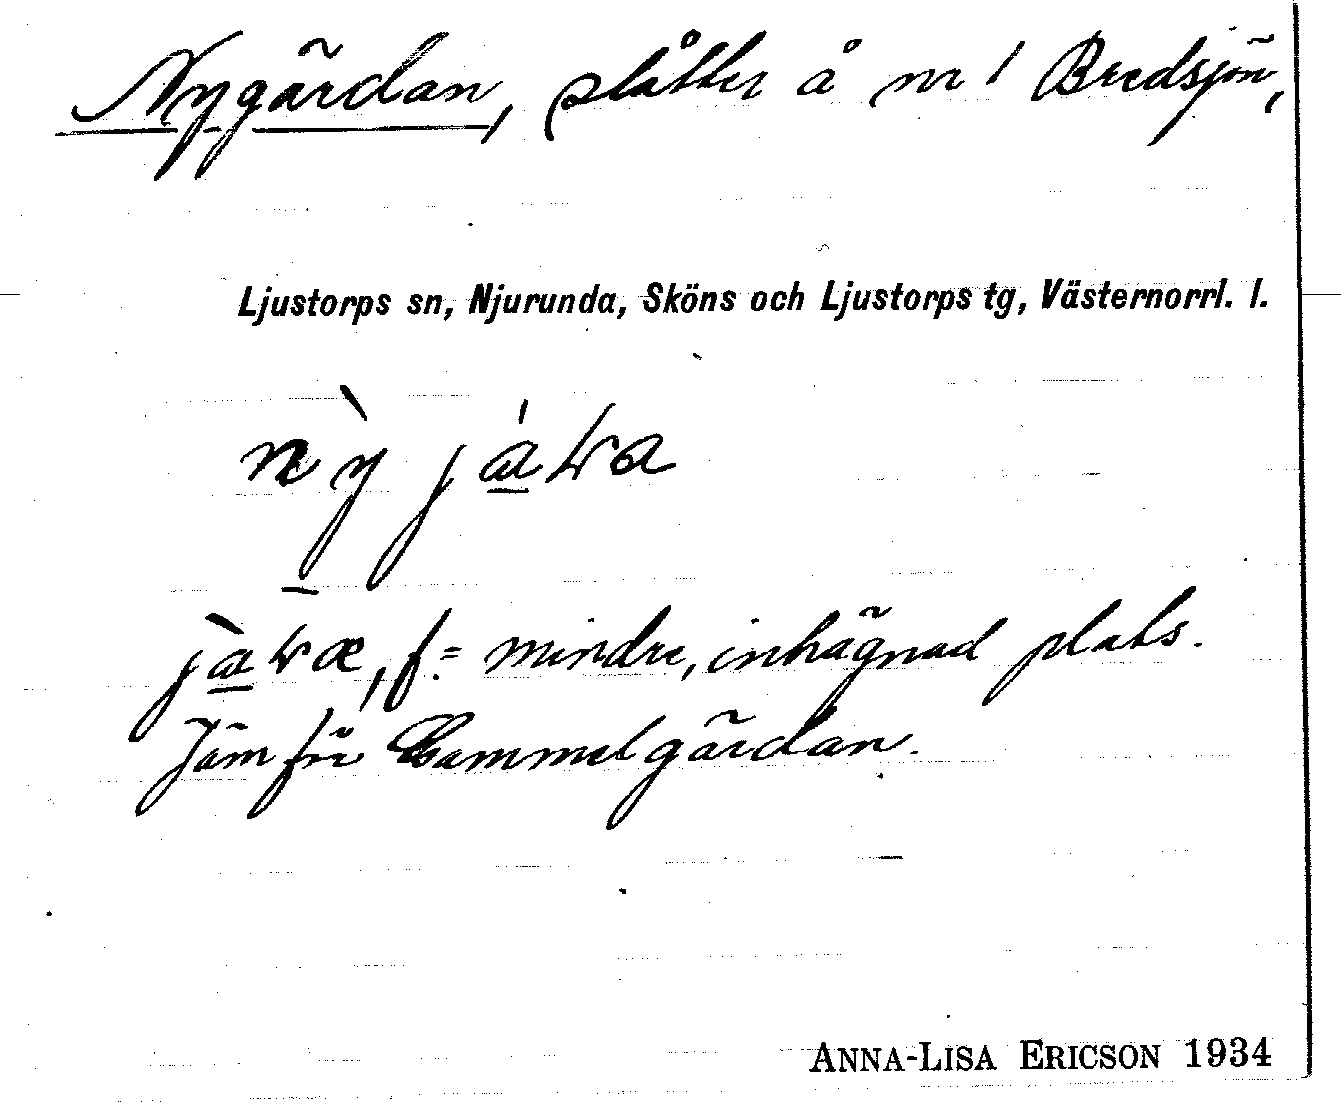 Nygärdan, slåtter å nr 1 Bredsjön,
Ljustorps sn, Njurunda, Sköns och Ljustorps tg, Västernorrl. l.
f. = mindre, inhägnad plats.
Jämför Gammelgärdan.
ANNA-LISA ERICSON 1934